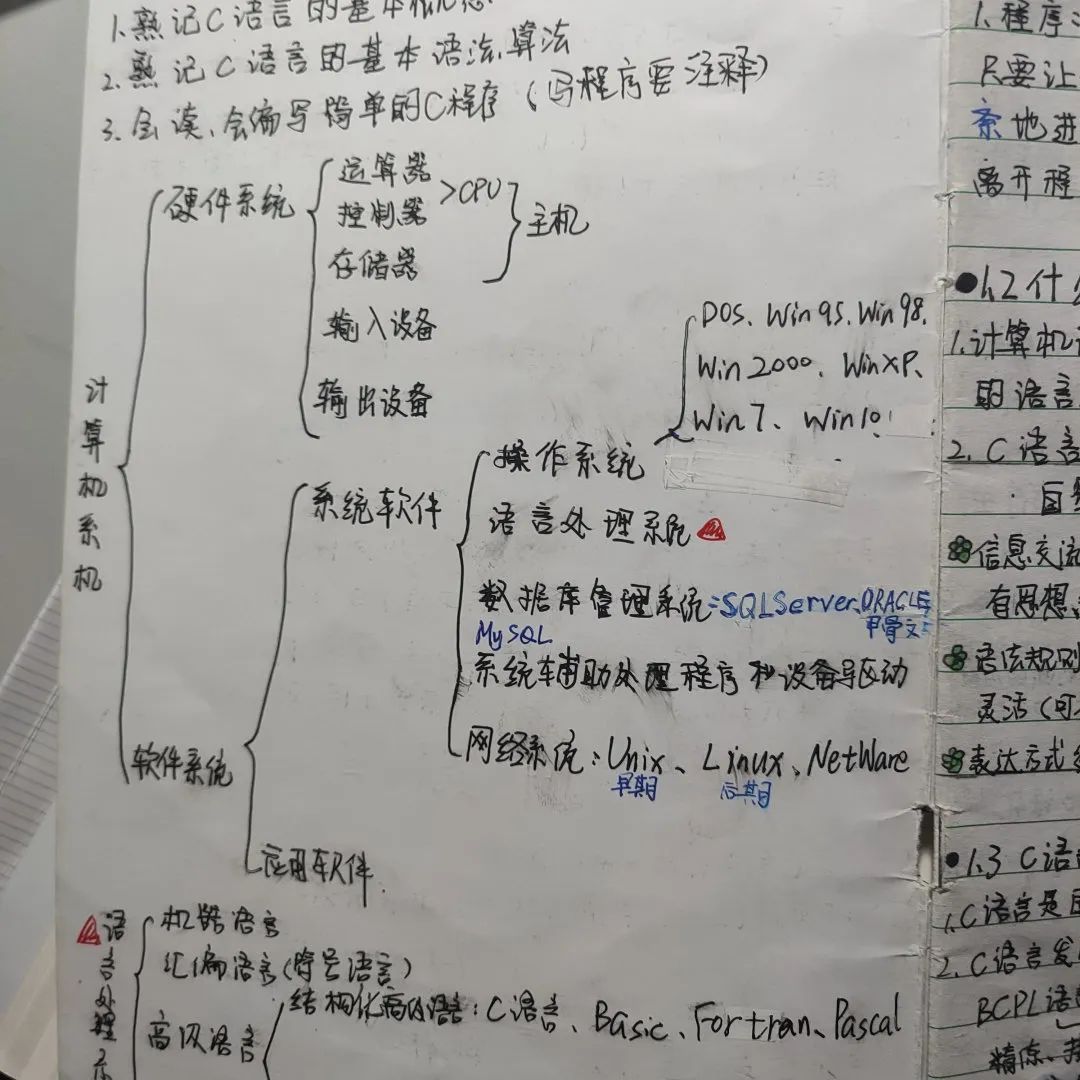 1.熟记C语言的基本概念
2.熟记C语言的基本语法、算法
3.会读、会编写简单的C程序(写程序要注释)
计算机系机
硬件系统
运算器
控制器
>CPU
存储器
主机
输入设备
输出设备
软件系统
系统软件
操作系统
DOS、Win95、Win98、
Win2000、WinXP、
Win7、Win10
语言处理系统
数据库管理系统:SQLServer、ORACLE
甲骨文
MySQL
系统辅助处理程序和设备驱动
网络系统:Unix、Linux、NetWare
早期
后期
应用软件
语言处理
机器语言
汇编语言(符号语言)
高级语言
结构化高级语言:C语言、Basic、Fortran、Pascal
1.程序
只要让
条地进
离开程
1.2什
1.计算机
的语言
2.C语言
自
信息交流
有思想
语法规则
灵活(可
表达方式
1.3 C语
1.C语言是
2.C语言发
BCPL语
精炼、